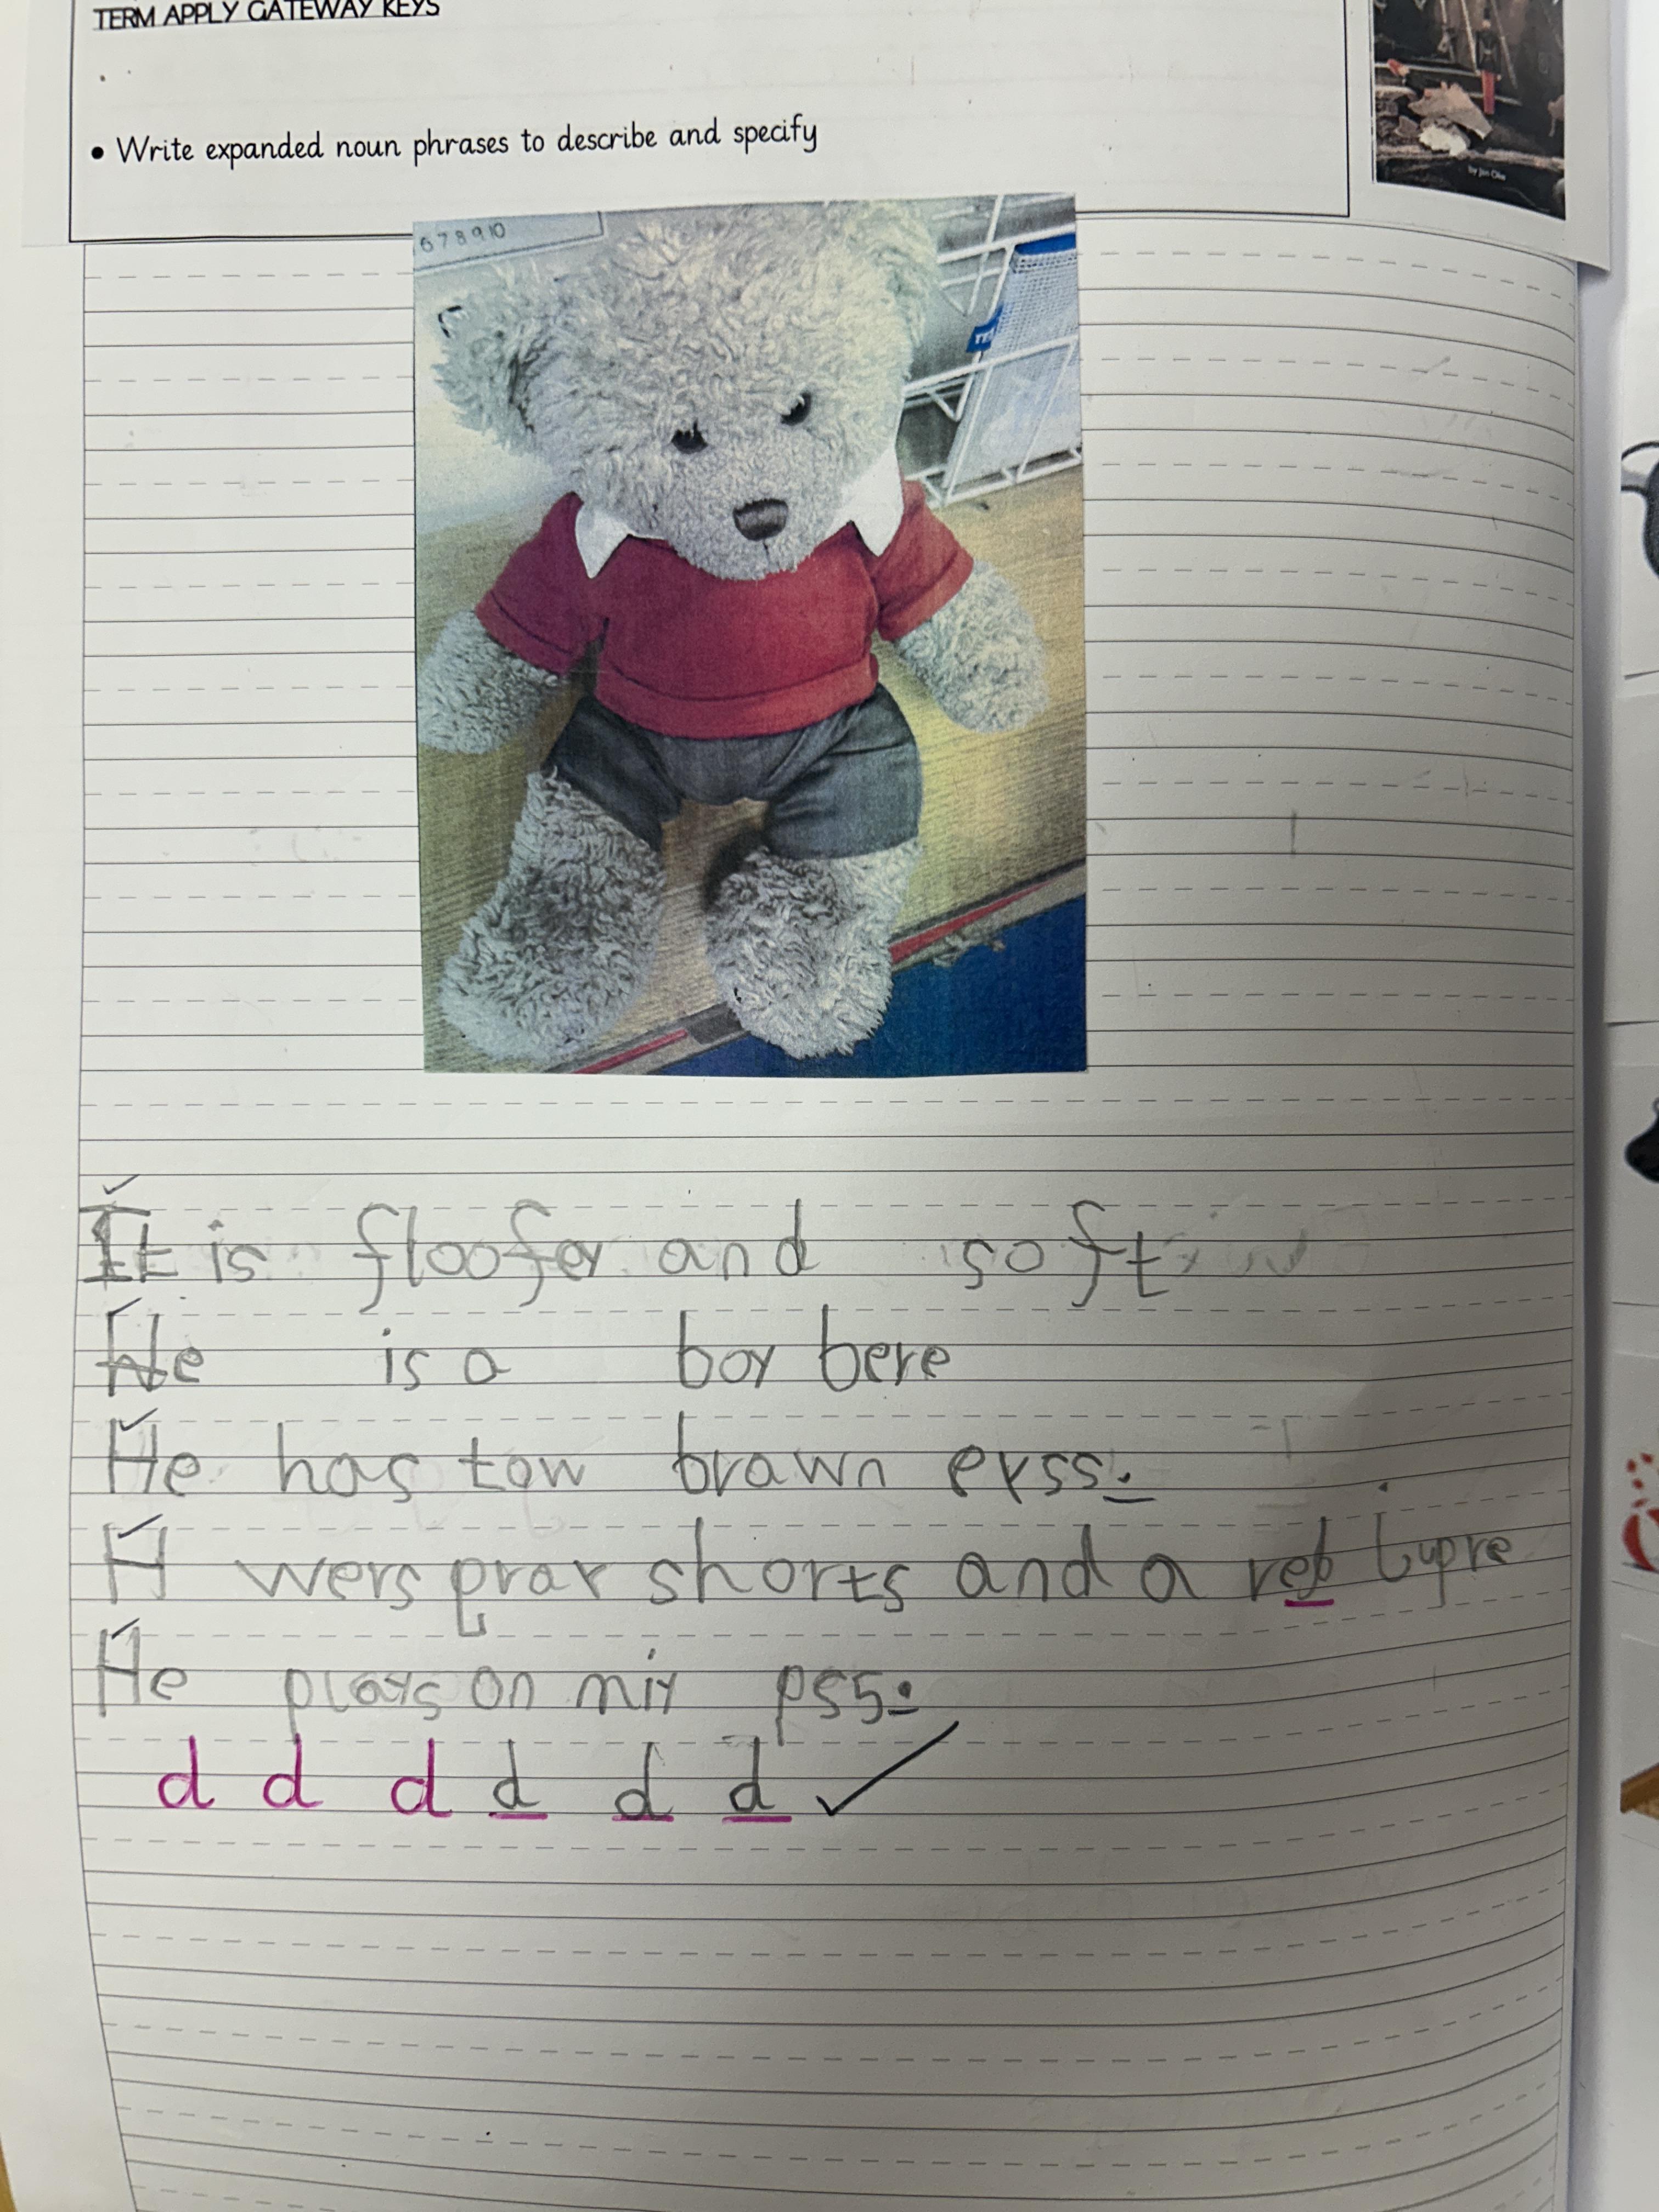 TERM APPLY GATEWAY KEYS
• Write expanded noun phrases to describe and specify
by Jan Oke
6 7 8 9 10
It is floofey and soft
He is a boy bere
He has tow brawn eyss.
H wers gray shorts and a reb
He plays on miy ps5.
d d d d d d